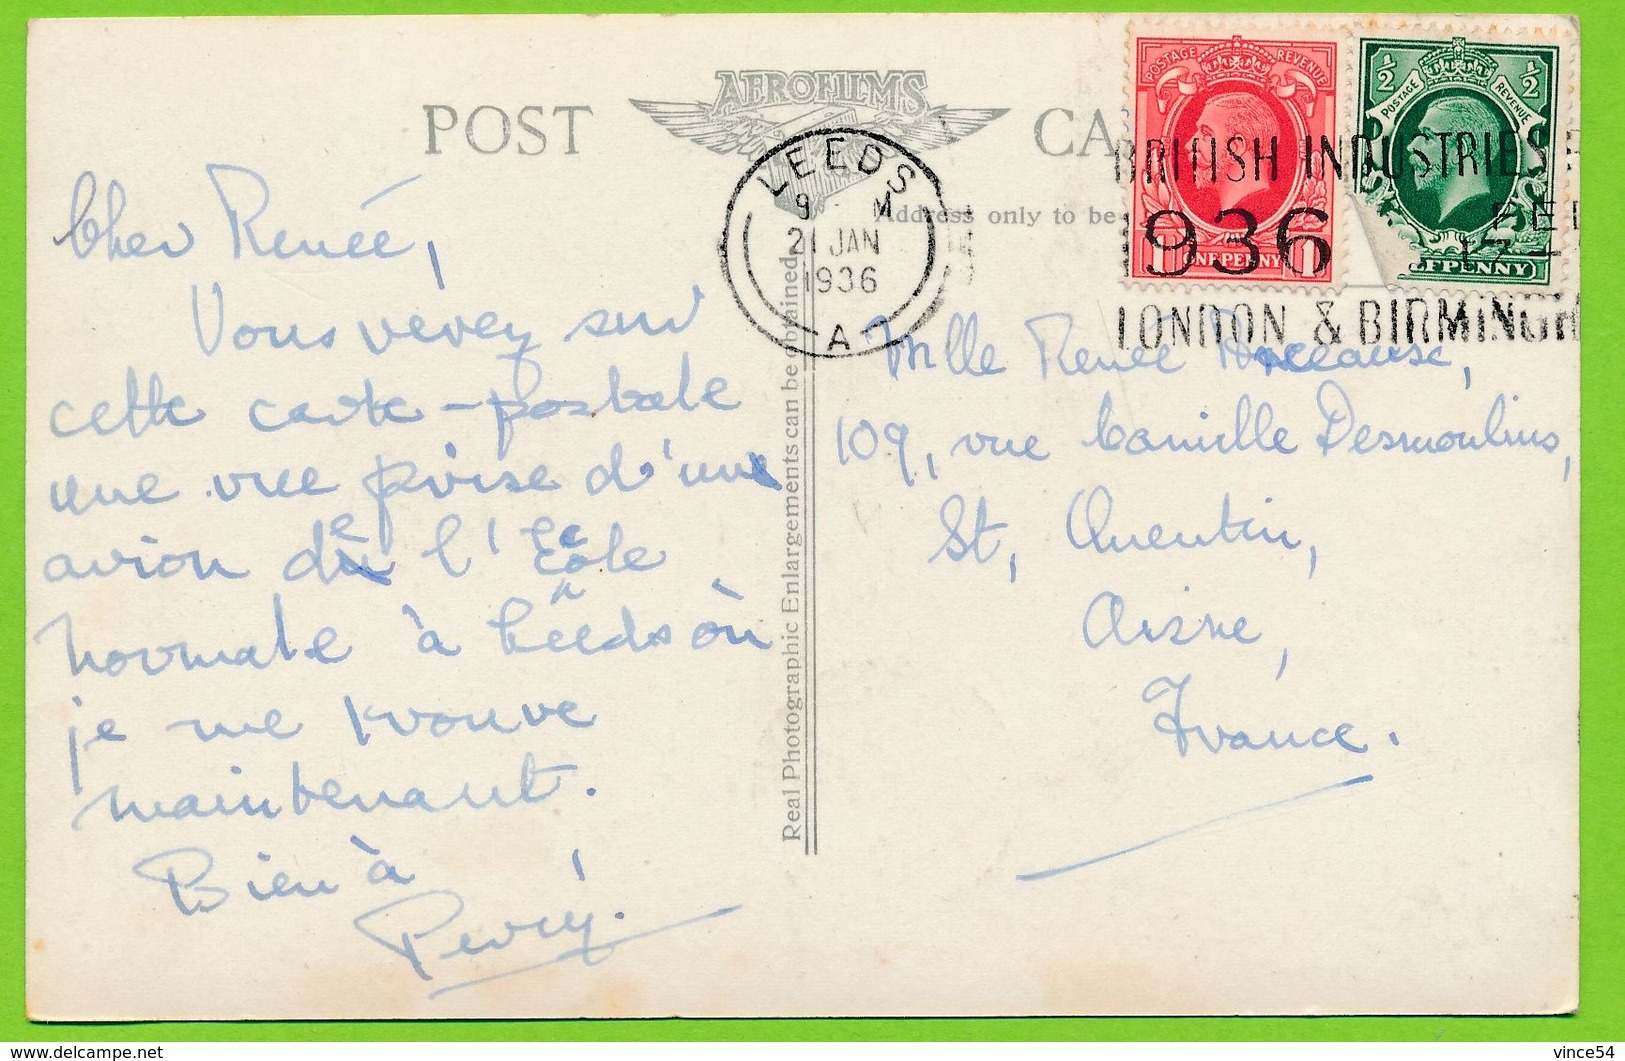 POST
AEROFILMS
CA
Address only to be
POSTAGE REVENUE
1 ONE PENNY 1
½ ½
POSTAGE REVENUE
LFPENNY
LEEDS
9 M
21 JAN
1936
A
BRITISH INDUSTRIES
1936
LONDON & BIRMINGH
Real Photographic Enlargements can be obtained.
Cher Renée,
Vous verrez sur
cette carte-postale
une vue prise d'une
avion de l'École
normale à Leeds où
je me trouve
maintenant.
Bien à
Percy.
Mlle Renée
109, rue Camille Desmoulins,
St, Quentin,
Aisne,
France.
delcampe.net
vince54